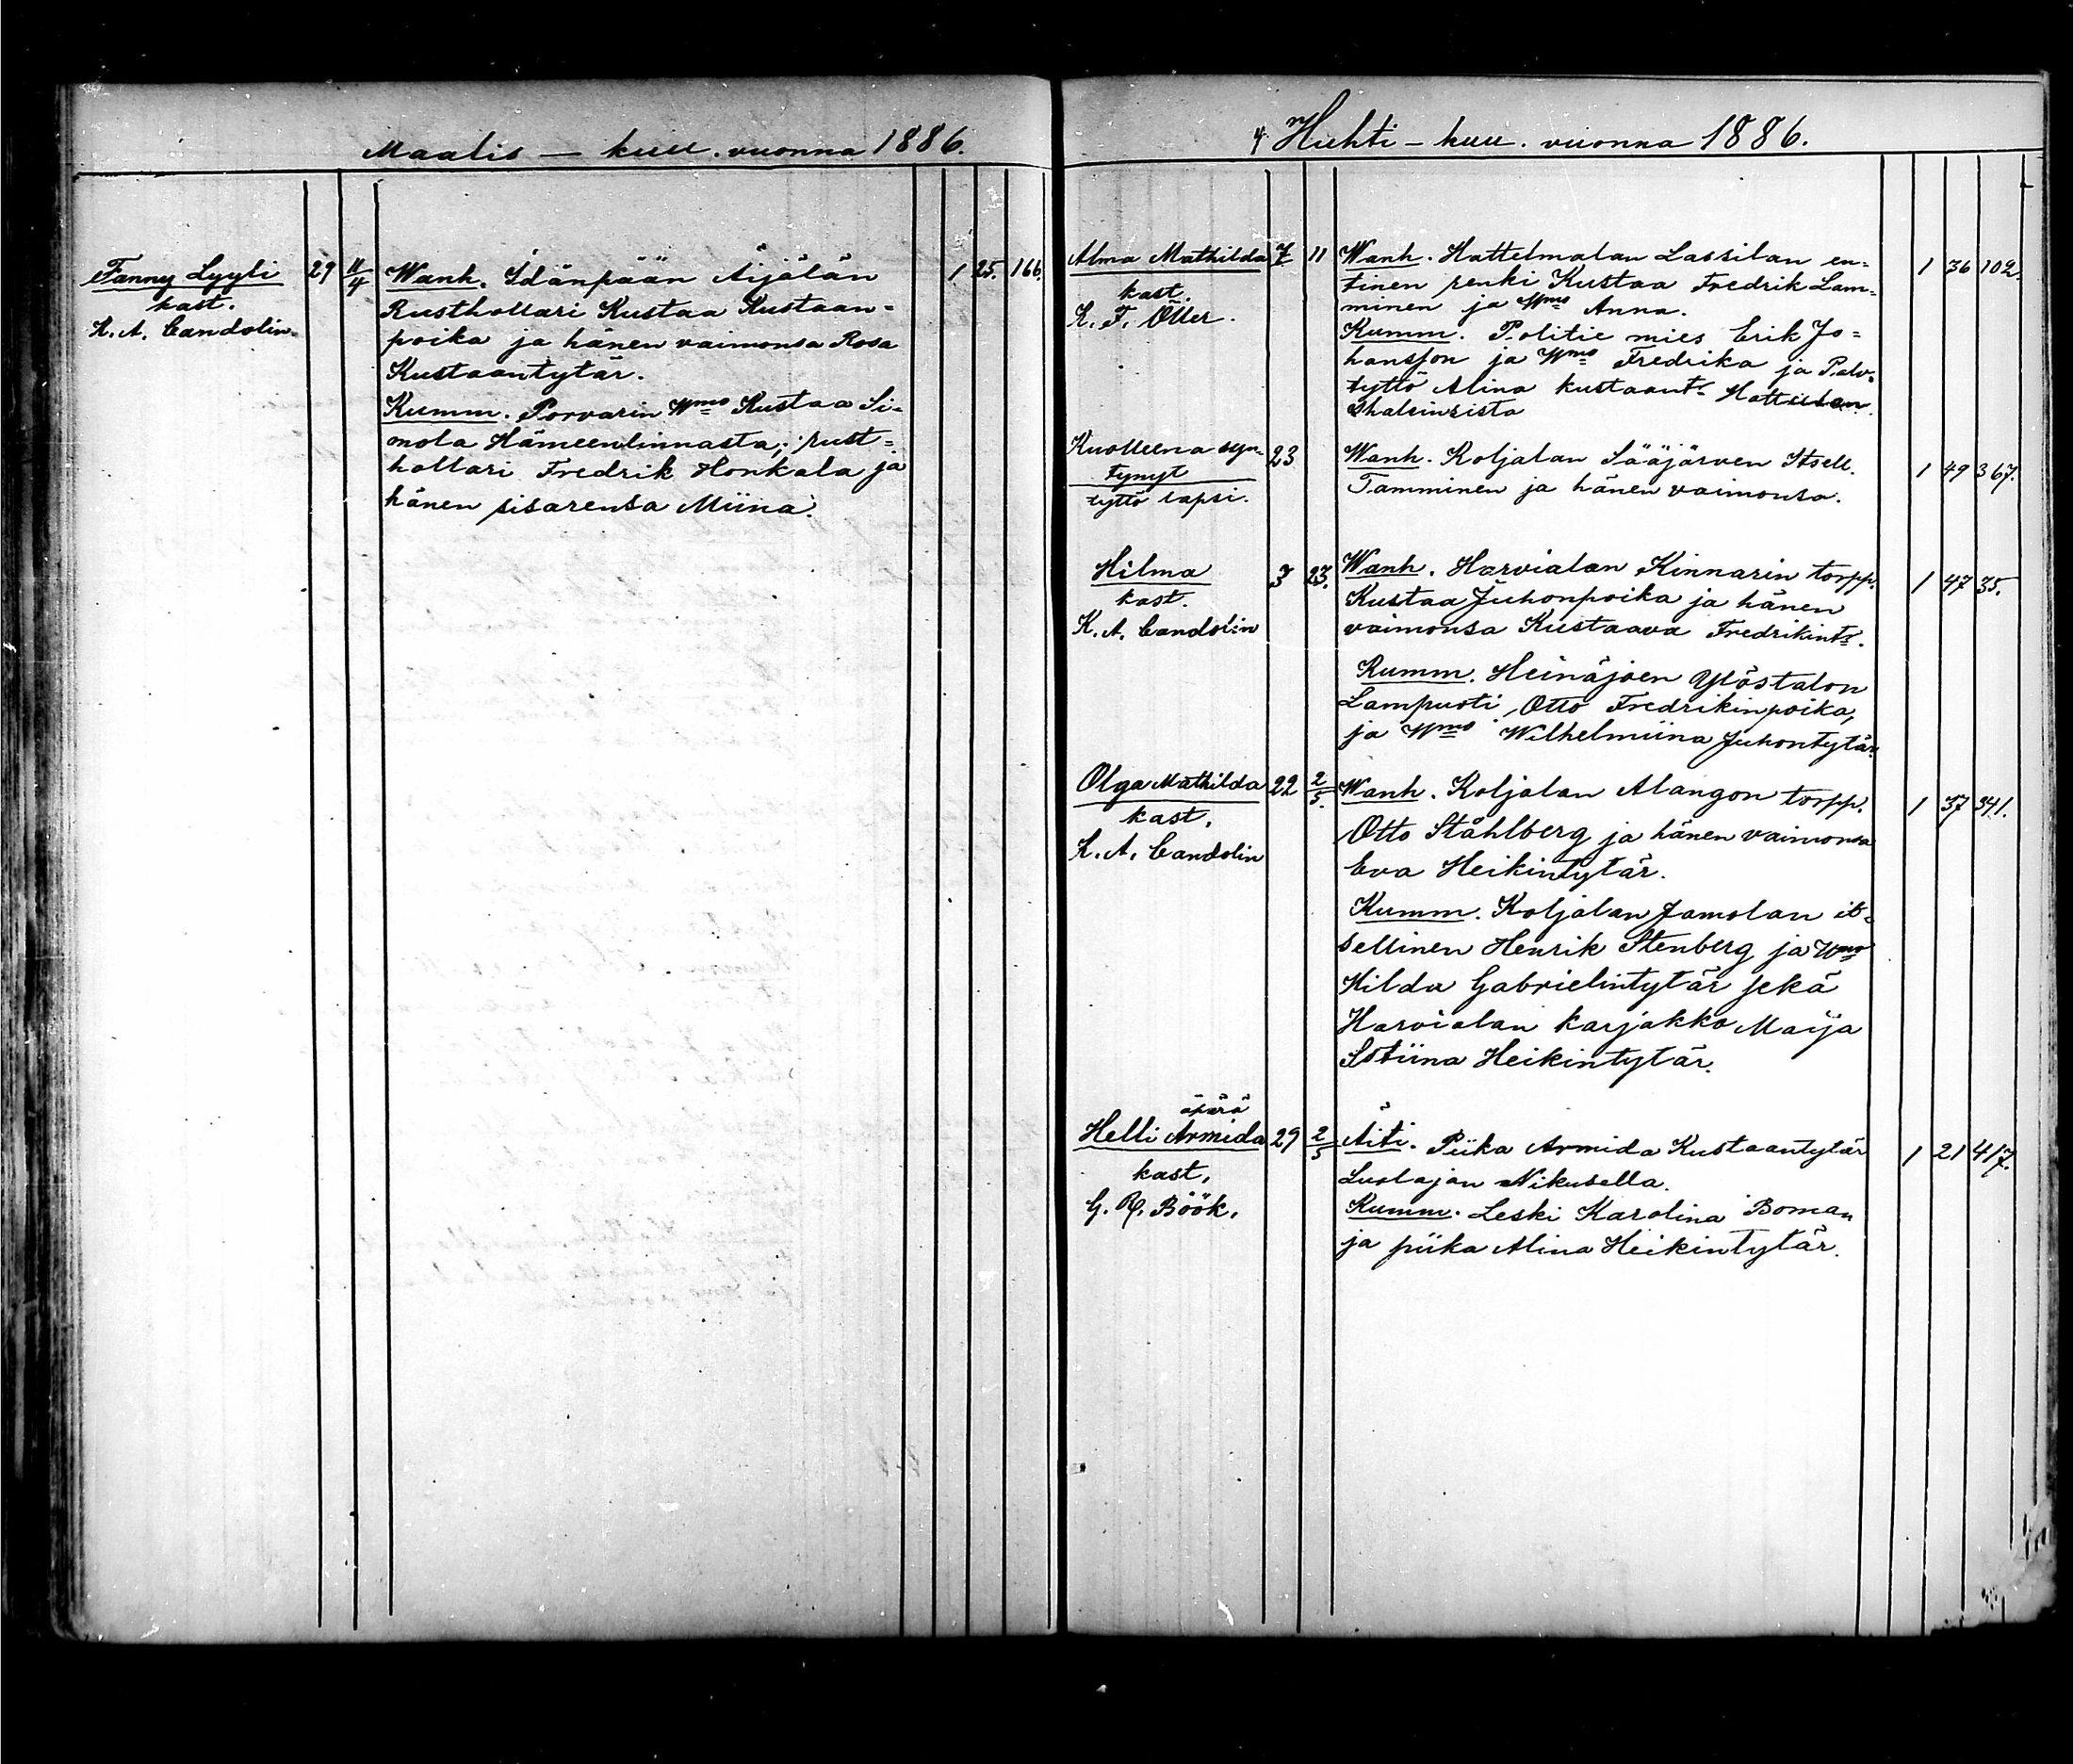 Maalis - kuu. vuonna 1886.
Fanny Lyyli
kast.
K. A. Candolin.
29 11/4
Wanh. Idänpään Äijälän
Rusthollari Kustaa Kustaan=
poika ja hänen vaimonsa Rosa
Kustaantytär.
Kumm. Porvarin Wmo Kustaa Si-
mola Hämeenlinnasta, rust=
hollari Fredrik Honkala ja
hänen sisarensa Miina.
1 25. 166.
4. Huhti - kuu. vuonna 1886.
Alma Mathilda
kast.
K. F. Öller.
7 11
Wanh. Hattelmalan Lassilan en=
tinen renki Kustaa Fredrik Lam=
minen ja Wmo Anna.
Kumm. Politie mies Erik Jo=
hansson ja Wmo Fredrika ja Palv=
tyttö Alina Kustaant.
1 36 102.
Kuolleena syn-
tynyt
tyttö lapsi.
23
Wanh. Koljalan Sääjärven Itsell.
Tamminen ja hänen vaimonsa.
1 49 367.
Hilma
kast.
K. A. Candolin
3 23.
Wanh. Harvialan Kinnarin torpp.
Kustaa Juhonpoika ja hänen
vaimonsa Kustaava Fredrikint.
Kumm. Heinäjoen Ylöstalon
Lampuoti Otto Fredrikinpoika,
ja Wmo Wilhelmiina Juhontytär.
1 47 35.
Olga Mathilda
kast.
K. A. Candolin
22 2/5.
Wanh. Koljalan Alangon torpp.
Otto Ståhlberg ja hänen vaimonsa
Eva Heikintytär.
Kumm. Koljalan Jamolan it=
sellinen Henrik Stenberg ja Wmo
Hilda Gabrielintytär sekä
Harvialan karjakko Maija
Stiina Heikintytär.
1 37 341.
äpärä
Helli Armida
kast.
G. R. Böök.
29 2/5
Äiti. Piika Armida Kustaantytär
Luolajan Nikusella.
Kumm. Leski Karolina Boman
ja piika Alina Heikintytär.
1 21 417.